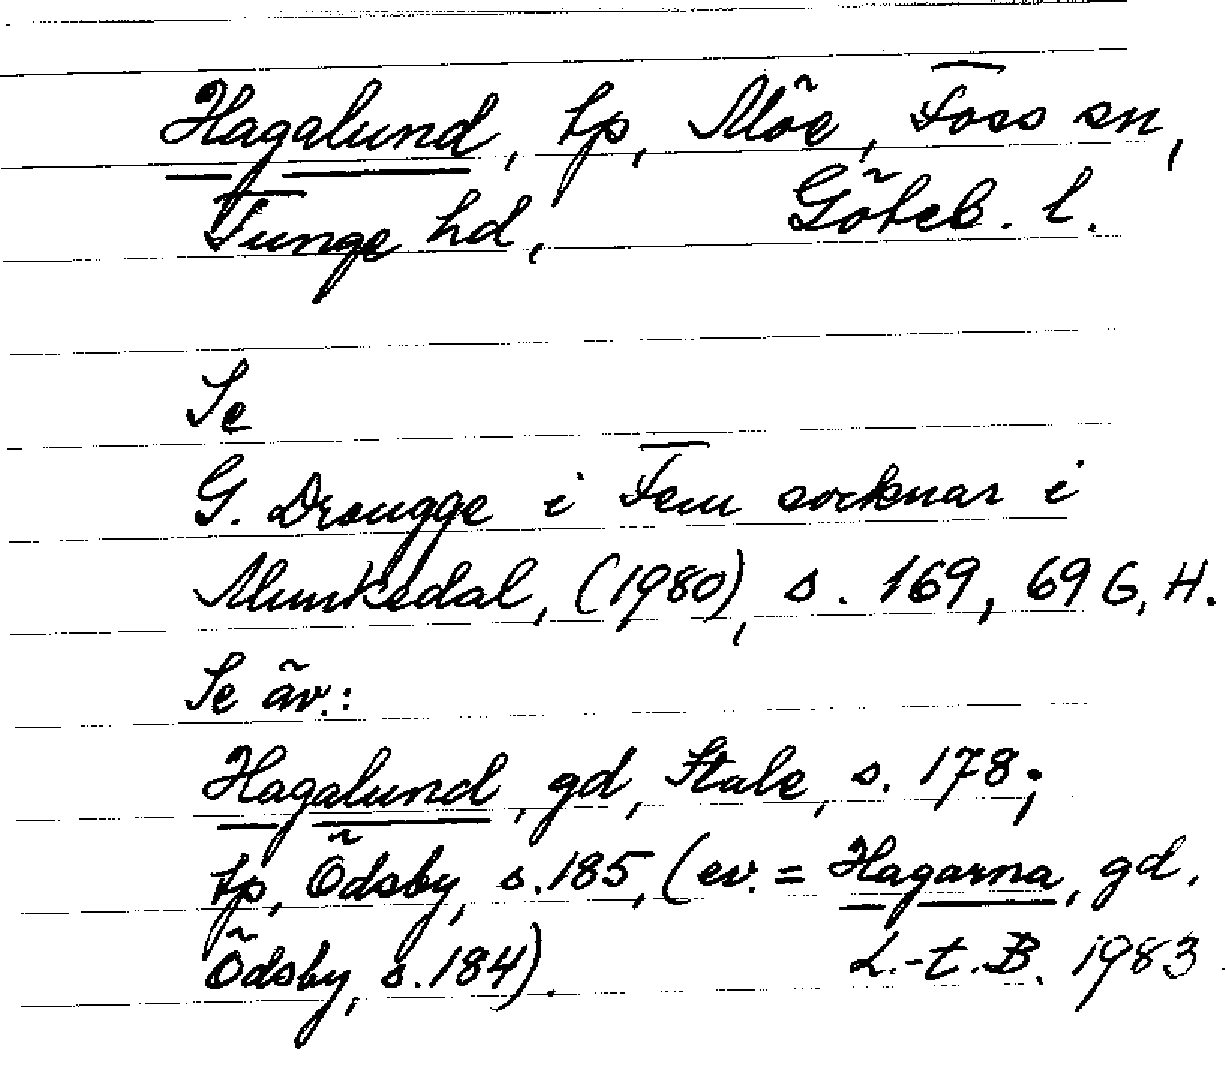 Hagalund, tp, Möe, Foss sn,
Tunge hd, Göteb. l.
Se
G. Drougge i Fem socknar i
Munkedal, (1980), s. 169, 69 G, H.
Se äv.:
Hagalund, gd, Stale, s. 178;
tp, Ödsby, s. 185, (ev. = Hagarna, gd,
Ödsby, s. 184). L.-t. B. 1983